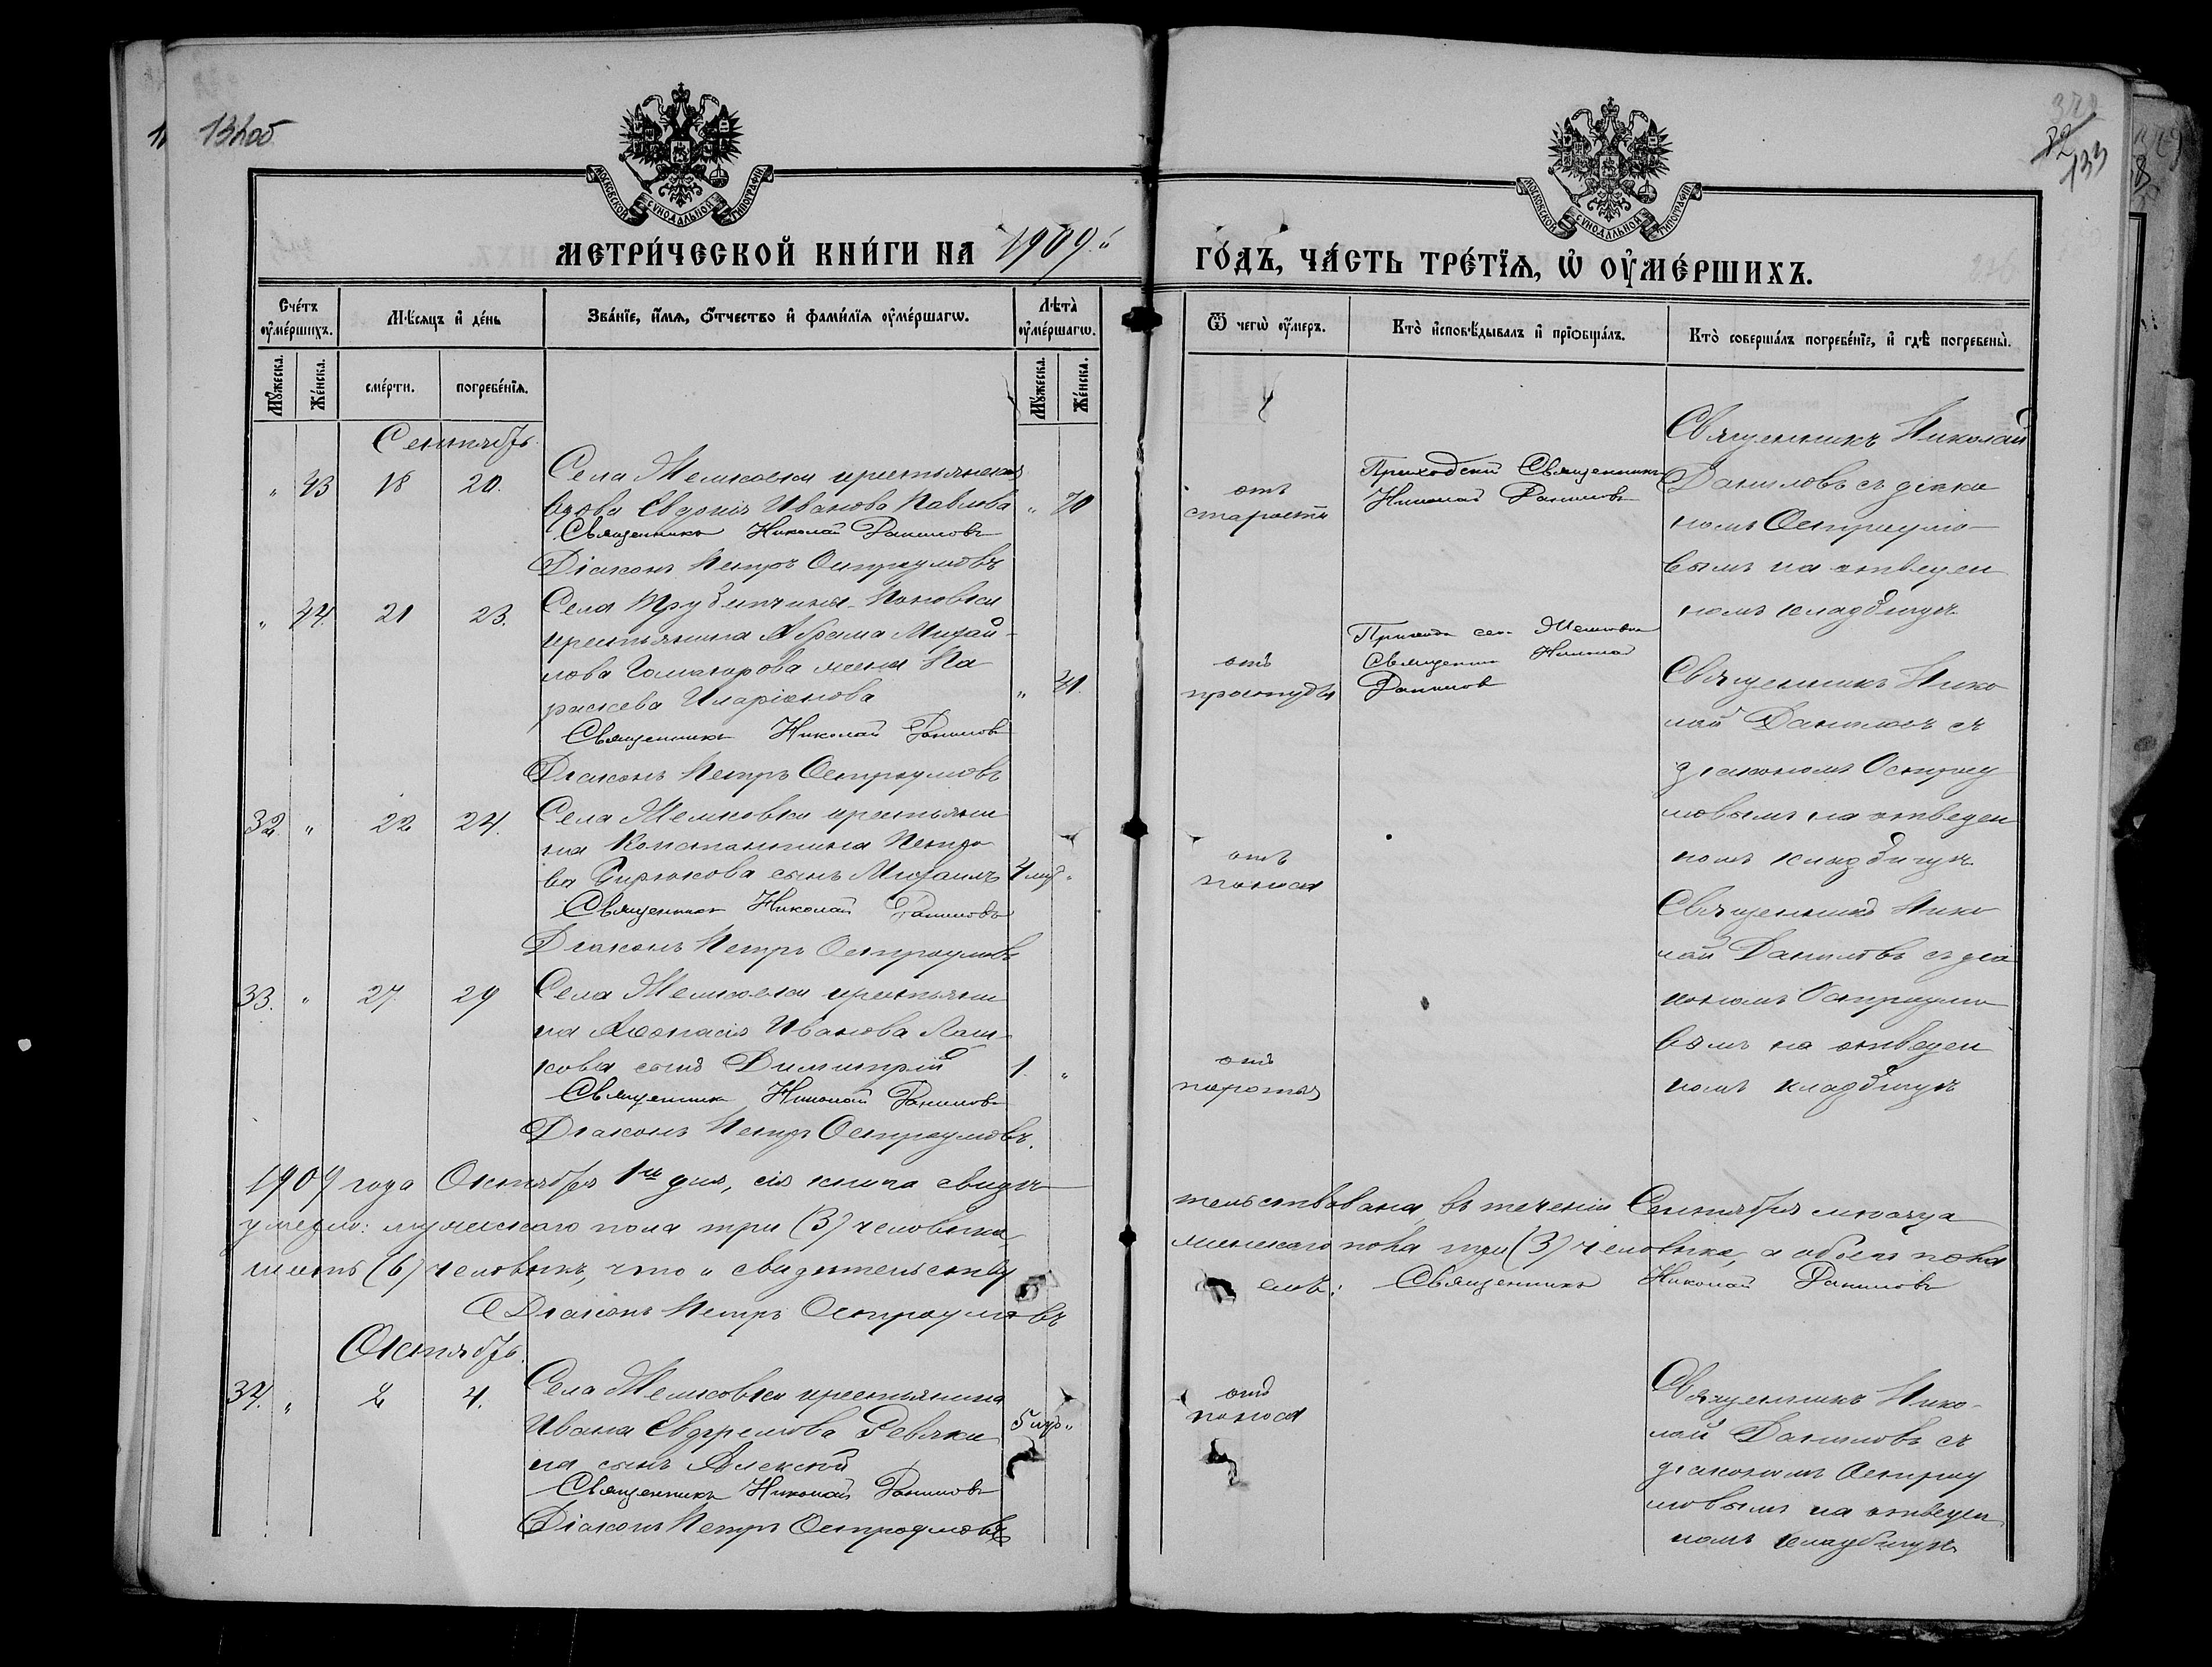 132об
372
82
133
МОСКОВСКОЙ СѴНОДАЛЬНОЙ ТИПОГРАФІИ
МОСКОВСКОЙ СѴНОДАЛЬНОЙ ТИПОГРАФІИ
МЕТРИ́ЧЕСКОЙ КНИ́ГИ НА 1909й
ГО́ДЪ, ЧА́СТЬ ТРЕ́ТІѦ, Ѡ ОУ҆МЕ́РШИХЪ.
Сче́тъ оу҆ме́ршихъ.
Мѣ́сяцъ и҆ де́нь
Зва́нїе, и҆́мѧ, ѻ҆́тчество и҆ фами́лїѧ оу҆ме́ршагѡ.
Лѣта̀ оу҆ме́ршагѡ.
Ѿ чегѡ̀ оу҆́меръ.
Кто̀ и҆сповѣ́дывалъ и҆ прїѻбща́лъ.
Кто̀ соверша́лъ погребе́нїе, и҆ гдѣ̀ погребены̀.
Мꙋ́жеска.
Же́нска.
сме́рти.
погребе́нїѧ.
Мꙋ́жеска.
Же́нска.
Сентябрь.
" 43 18 20.
Села Жемковки крестьянская
вдова Евдокія Иванова Павлова " 70
Священникъ Николай Даниловъ
Діаконъ Петръ Остроумовъ
отъ
старости
Приходскій Священникъ
Николай Даниловъ
Священникъ Николай
Даниловъ съ діако
номъ Остроумо-
вымъ на отведен
номъ кладбищѣ
" 44. 21 23.
Села Трубетчины-Поповки
крестьянина Абрама Михай-
лова жена Па
раскева Иларіонова " 41.
Священникъ Николай Даниловъ
Діаконъ Петръ Остроумовъ
отъ
простуды
Прихода сел. Жемковки
Священникъ Николай
Данилов
Священникъ Нико
лай Даниловъ съ
діакономъ Остроу
мовымъ на отведен
номъ кладбищѣ
32. " 22 24.
Села Жемковки крестьяни
на Константина Петро
ва Бирюкова сынъ Михаилъ 4 мѣс "
Священникъ Николай Даниловъ
Діаконъ Петръ Остроумовъ
отъ
поноса
Священникъ Нико
лай Даниловъ съ діа
кономъ Остроумо
вымъ на отведен
номъ кладбищѣ
33. " 27 29
Села Жемковки крестьяни
на Аѳонасія Иванова Лаш-
кова сынъ Димитрій 1. "
Священникъ Николай Даниловъ
Діаконъ Петръ Остроумовъ.
отъ
1909 года Октября 1го дня, сія книга свидѣ
тельствована, въ теченіи Сентября мѣсяца
умерло: мужескаго пола три (3) человѣка,
женскаго пола три (3) человѣка, а обоего пола
шесть (6) человѣкъ, что и свидѣтельству
емъ: Священникъ Николай Даниловъ
Діаконъ Петръ Остроумовъ
Октябрь.
34. " 2 4.
Села Жемковки крестьянина
Ивана Евдремова Ревяки 5 мѣс "
на сынъ Алексѣй
Священникъ Николай Даниловъ
Діаконъ Петръ Остроумовъ
отъ
поноса
Священникъ Нико-
лай Даниловъ съ
діакономъ Остроу
мовымъ на отведен
номъ кладбищѣ